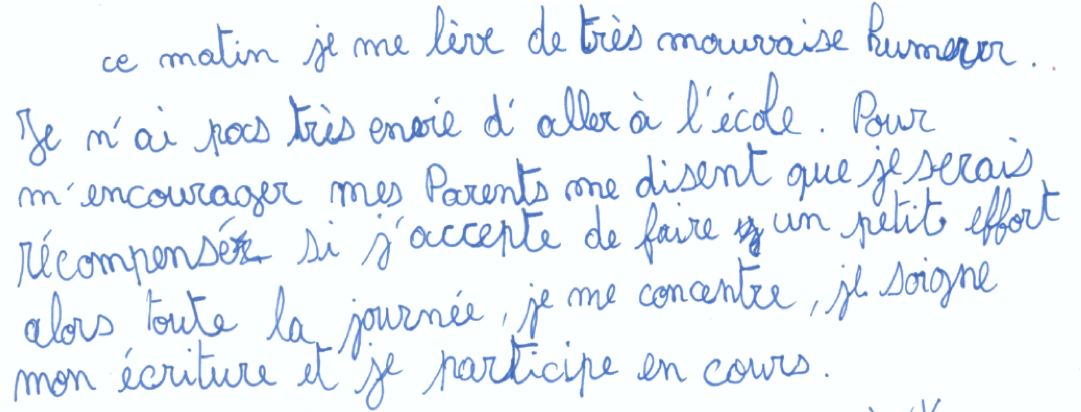 ce matin je me lève de très mauvaise humeur.
Je n'ai pas très envie d'aller à l'école. Pour
m'encourager mes Parents me disent que je serais
récompensé si j'accepte de faire un petit effort
alors toute la journée, je me concentre, je soigne
mon écriture et je participe en cours.